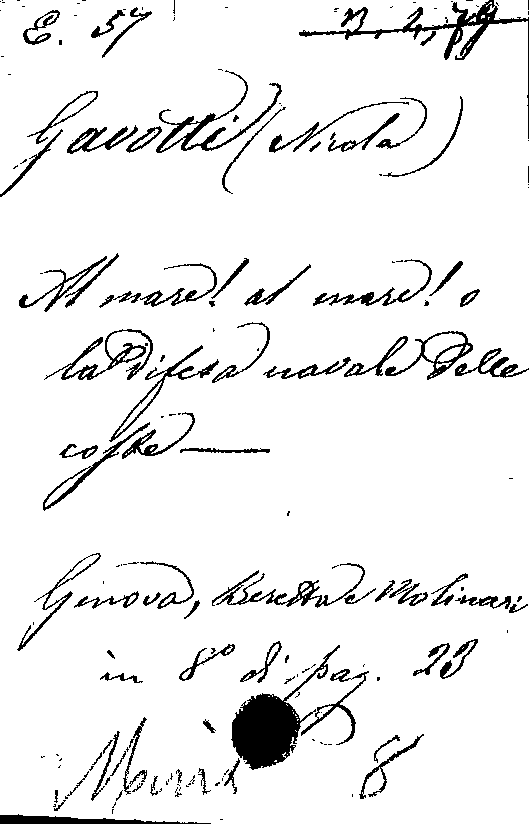 E. 57 3, 2, 79
Gavotti (Nicola)
Al mare! al mare! o
la difesa navale delle
coste —
Genova, Beretta e Molinari
in 8° di pag. 23
8